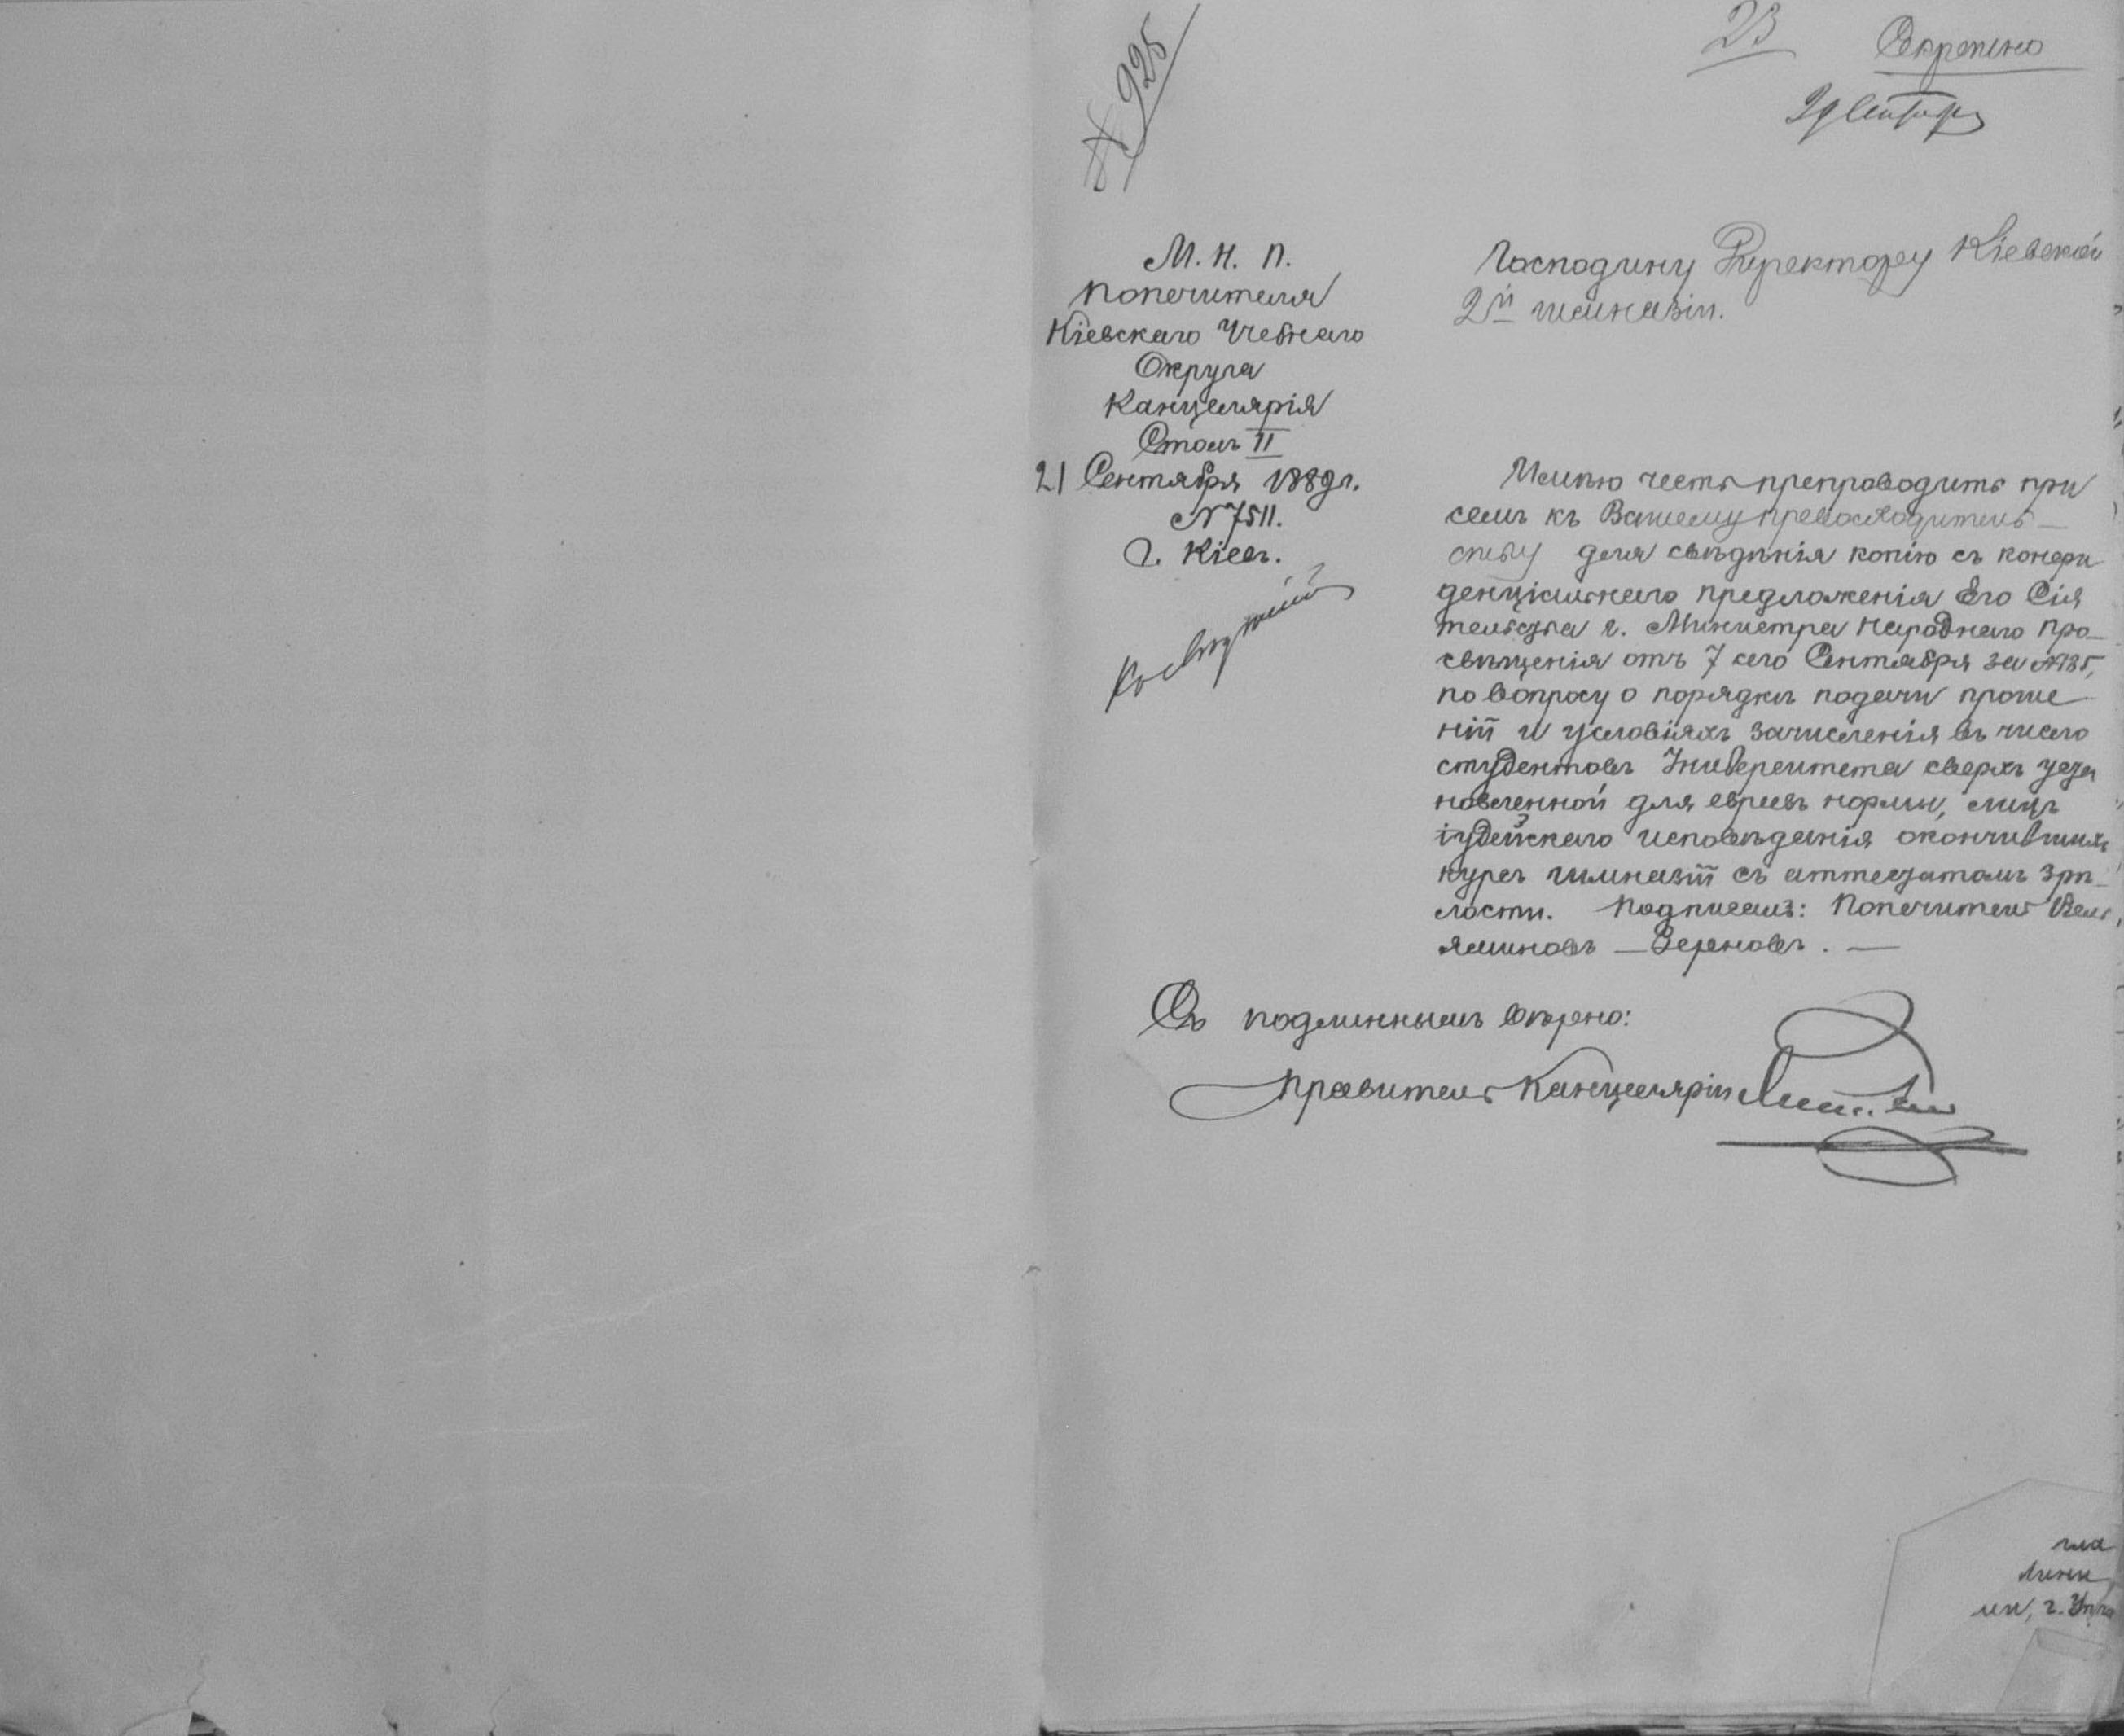 № 925
23
Секретно
29 Сентября
М. Н. П.
Попечителя
Кіевскаго Учебнаго
Округа
Канцелярія
Столъ II
21 Сентября 1889 г.
№ 7511.
г. Кіевъ.
Господину Директору Кіевской
2й гимназіи.
Имѣю честь препроводить при
семъ къ Вашему Превосходитель-
ству для свѣдѣнія копію съ конфи
денціальнаго предложенія Его Сія
тельства г. Министра Народнаго Про-
свѣщенія отъ 7 сего Сентября за №
по вопросу о порядкѣ подачи проше
ній и условіяхъ зачисленія въ число
студентовъ Университета сверхъ уста
новленной для евреевъ нормы, лицъ
іудейскаго исповѣданія окончившихъ
курсъ гимназій съ аттестатомъ зрѣ-
лости. Подписалъ: Попечитель Велья
яминовъ - Зерновъ. —
Съ подлиннымъ вѣрно:
Правитель Канцеляріи